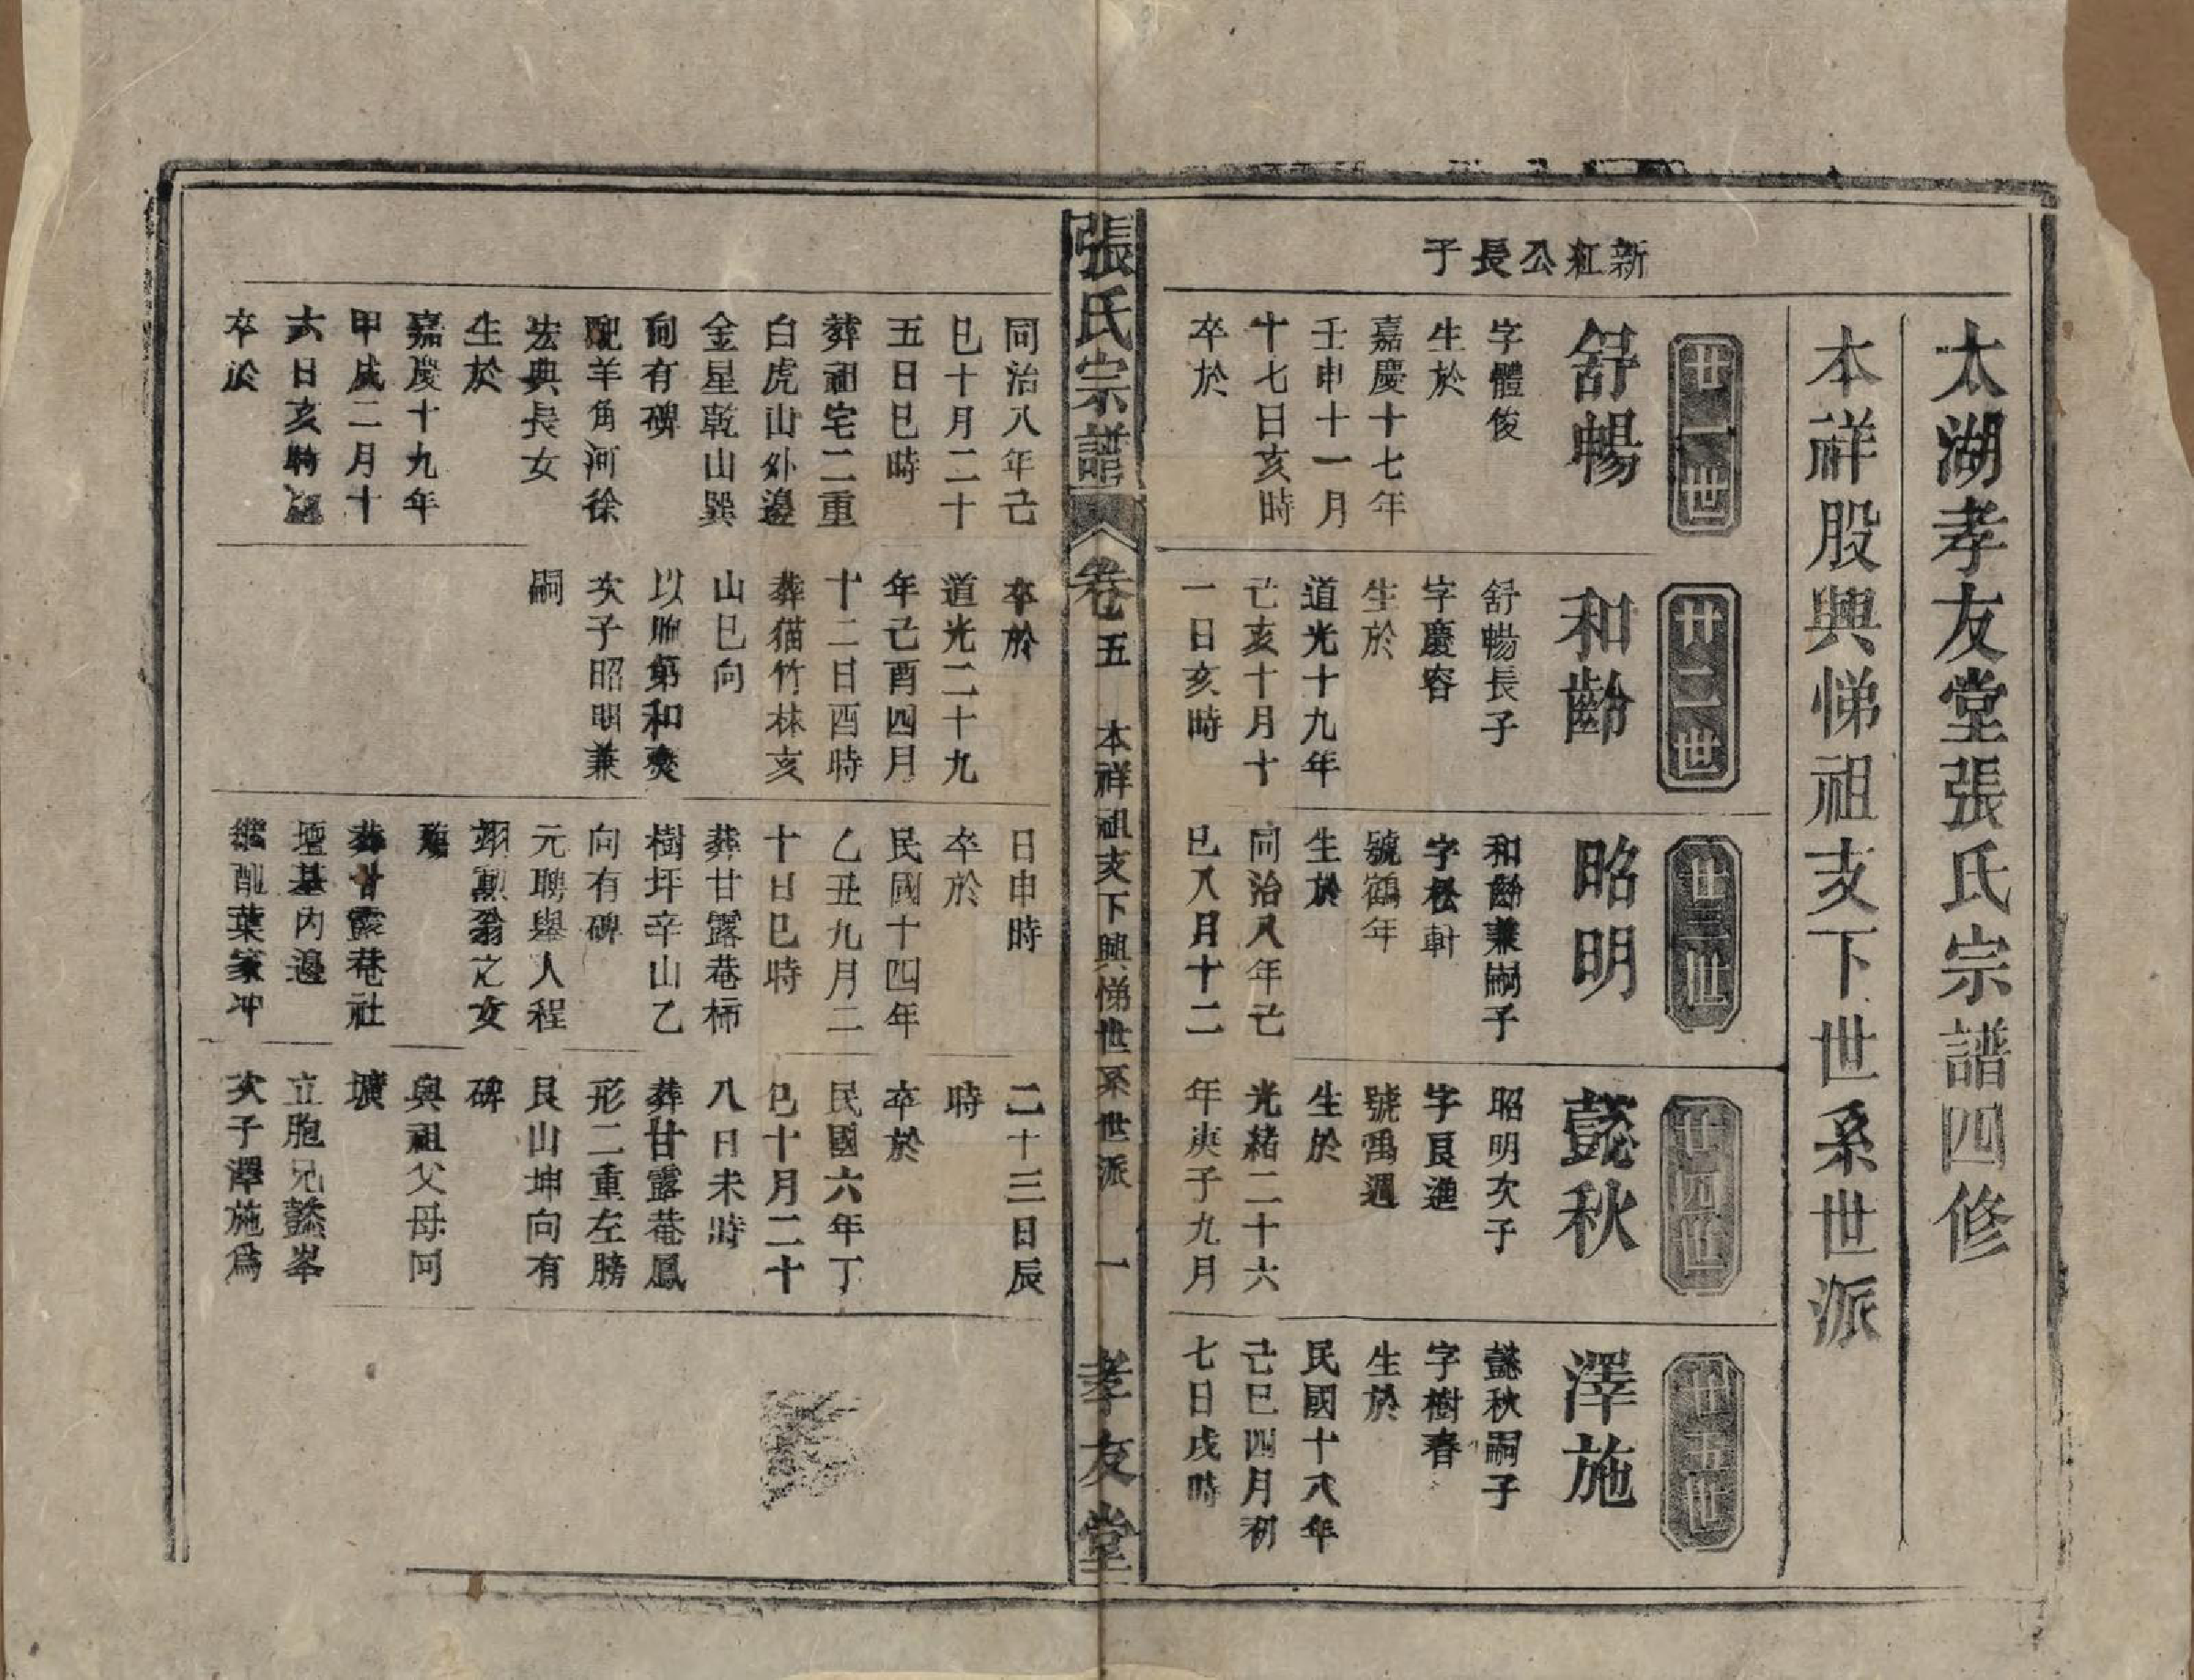 太湖孝友堂張氏宗譜四修
本祥股興悌祖支下世系世派
新紅公長子
廿一世
舒暢
字體俊
生於
嘉慶十七年
壬申十一月
十七日亥時
卒於
廿二世
和齡
舒暢長子
字慶容
生於
道光十九年
己亥十月十
一日亥時
廿三世
昭明
和齡兼嗣子
字松軒
號鶴年
生於
同治八年己
巳八月十二
廿四世
懿秋
昭明次子
字艮進
號禹週
生於
光緒二十六
年庚子九月
廿五世
澤施
懿秋嗣子
字樹春
生於
民國十八年
己巳四月初
七日戌時
張氏宗譜
卷五
本祥祖支下興悌世系世派
一
孝友堂
同治八年己
巳十月二十
五日巳時
葬祖宅二重
白虎山外邊
金星乾山巽
向有碑
配羊角河徐
宏典長女
生於
嘉慶十九年
甲戌二月十
六日亥時
卒於
卒於
道光二十九
年己酉四月
十二日酉時
葬猫竹林亥
山巳向
以胞第和爕
次子昭明兼
嗣
日申時
卒於
民國十四年
乙丑九月二
十日巳時
葬甘露菴柿
樹坪辛山乙
向有碑
元聘舉人程
翊勳翁之女
葬甘露菴社
壇基內邊
繼配葉家冲
二十三日辰
時
卒於
民國六年丁
巳十月二十
八日未時
葬甘露菴鳳
形二重左膀
艮山坤向有
碑
與祖父母同
壙
立胞兄懿峯
次子澤施爲